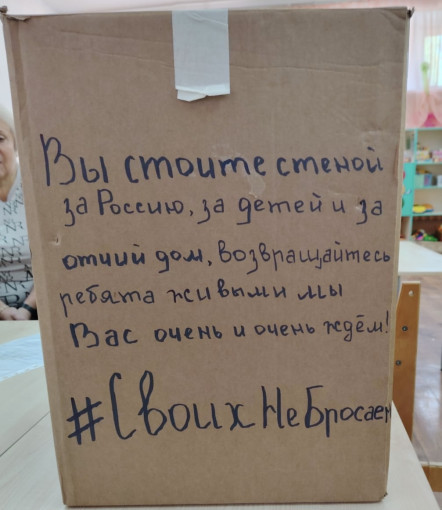 Вы стоите стеной
за Россию, за детей и за
отчий дом, возвращайтесь
ребята живыми мы
Вас очень и очень ждём!
#СвоихНеБросаем